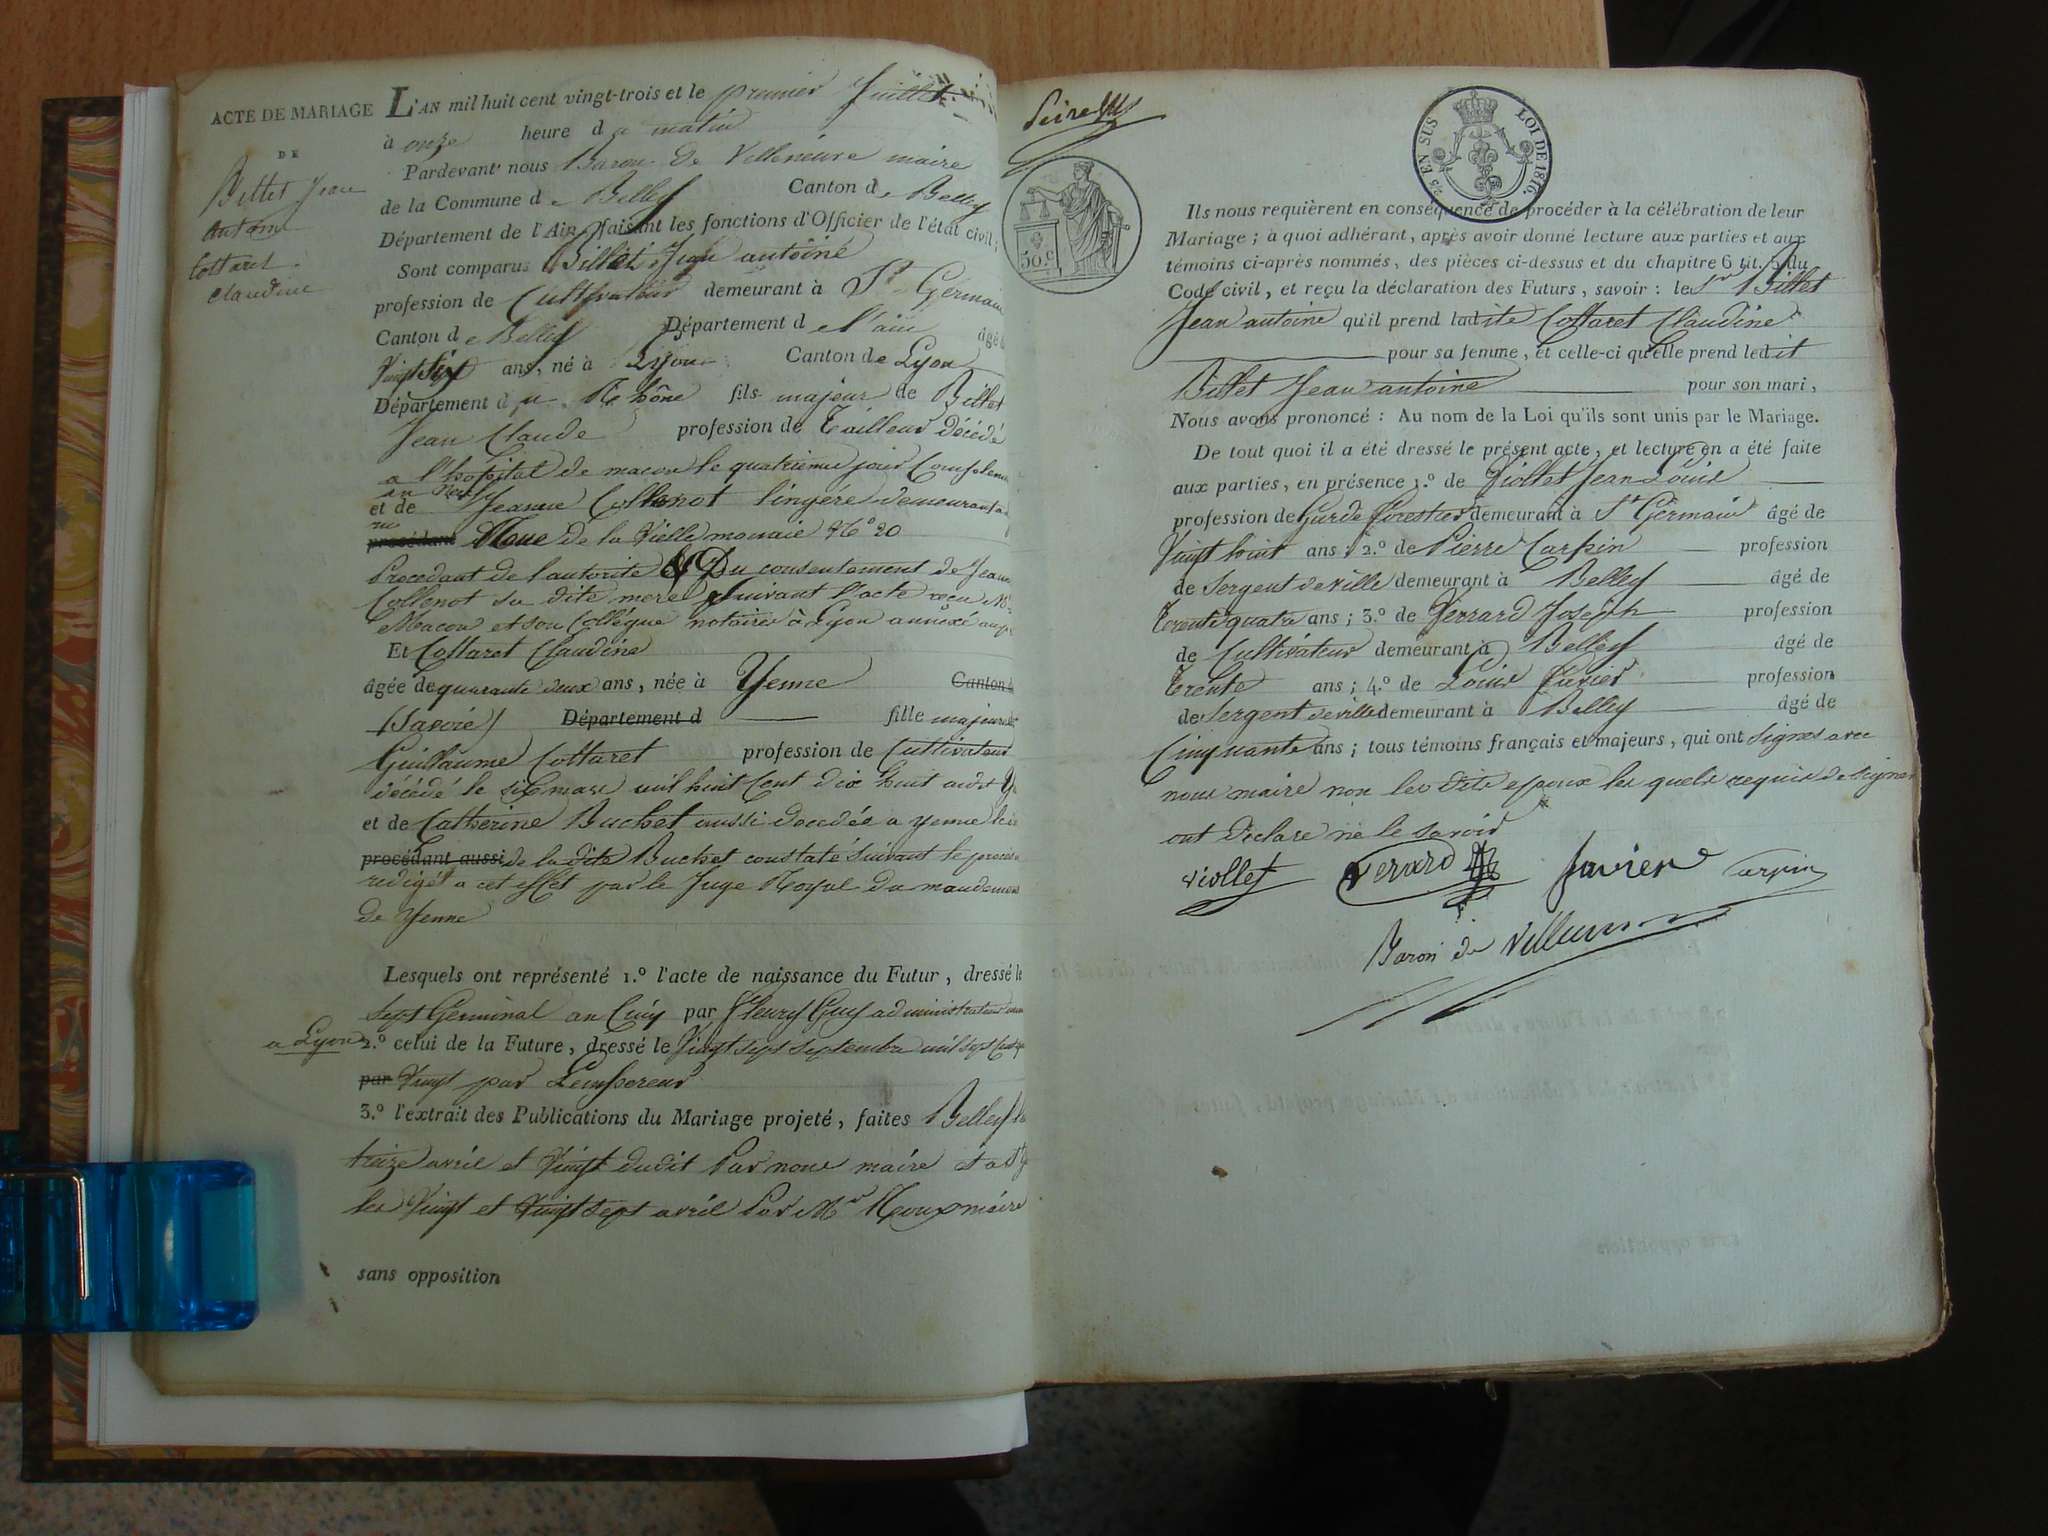 ACTE DE MARIAGE
DE
Billet Jean
antoine
Cottaret
Claudine
L'AN mil huit cent vingt-trois et le premier Juillet
à onze heure du matin
Pardevant nous Baron De Villeneuve maire
de la Commune de Belley Canton de Belley
Département de l'Ain, faisant les fonctions d'Officier de l'état civil;
Sont comparus Billet Jean antoine
profession de Cultivateur demeurant à St Germain
Canton de Belley Département de l'ain âgé
Vingt Six ans, né à Lyon Canton de Lyon
Département du Rhône fils majeur de Billet
Jean Claude profession de Tailleur décédé
a l'hopital de macon le quatrieme jour
an neuf
et de Jeanne Collenot lingére demeurant a
procédant Roue de la Vielle monnaie No 20
Procedant de l'autorite & Du consentement de Jeanne
Collenot sa dite mere suivant l'acte reçu Mtre
Macon et son Collégue notaires à Lyon annéxé
Et Cottaret Claudine
âgée de quarante deux ans, née à Yenne Canton
(Savoie) Département d fille majeure
Guillaume Cottaret profession de Cultivateur
décédé le six mars mil huit Cent dix huit audit
et de Catherine Buchet aussi décédée a yenne le
procédant aussi de la dite Buchet constaté suivant le procès
redigét a cet effet par le Juge Royal du mandement
de Yenne
Lesquels ont représenté 1.º l'acte de naissance du Futur, dressé le
sept Germinal an Cinq par Fleury Guy administrateur
a Lyon
2.º celui de la Future, dressé le Vingt sept septembre mil sept Cent
par Vingt par Lempereur
3.º l'extrait des Publications du Mariage projeté, faites Belley
treize avril et Vingt dudit Par nous maire et a St
les Vingt et Vingt sept avril Par Mr Roux maire
sans opposition
50 c
25 EN SUS LOI DE 1816.
Ils nous requièrent en conséquence de procéder à la célébration de leur
Mariage; à quoi adhérant, après avoir donné lecture aux parties et aux
témoins ci-après nommés, des pièces ci-dessus et du chapitre 6 tit. 5 du
Code civil, et reçu la déclaration des Futurs, savoir: le Sr Billet
Jean antoine qu'il prend ladite Cottaret Claudine
pour sa femme, et celle-ci qu'elle prend ledit
Billet Jean antoine pour son mari,
Nous avons prononcé: Au nom de la Loi qu'ils sont unis par le Mariage.
De tout quoi il a été dressé le présent acte, et lecture en a été faite
aux parties, en présence 1.º de Viollet Jean Louis
profession de Garde Forestier demeurant à St Germain âgé de
Vingt huit ans; 2.º de Pierre Carpin profession
de Sergent de ville demeurant à Belley âgé de
Trente quatre ans; 3.º de Verrard Joseph profession
de Cultivateur demeurant à Belley âgé de
Trente ans; 4.º de Louis Juvier profession
de Sergent de ville demeurant à Belley âgé de
Cinquante ans; tous témoins français et majeurs, qui ont signes avec
nous maire non les dits epoux les quels requis de signer
ont déclare ne le savoir
viollet Verard Juvier Carpin
Baron de Villeneuve